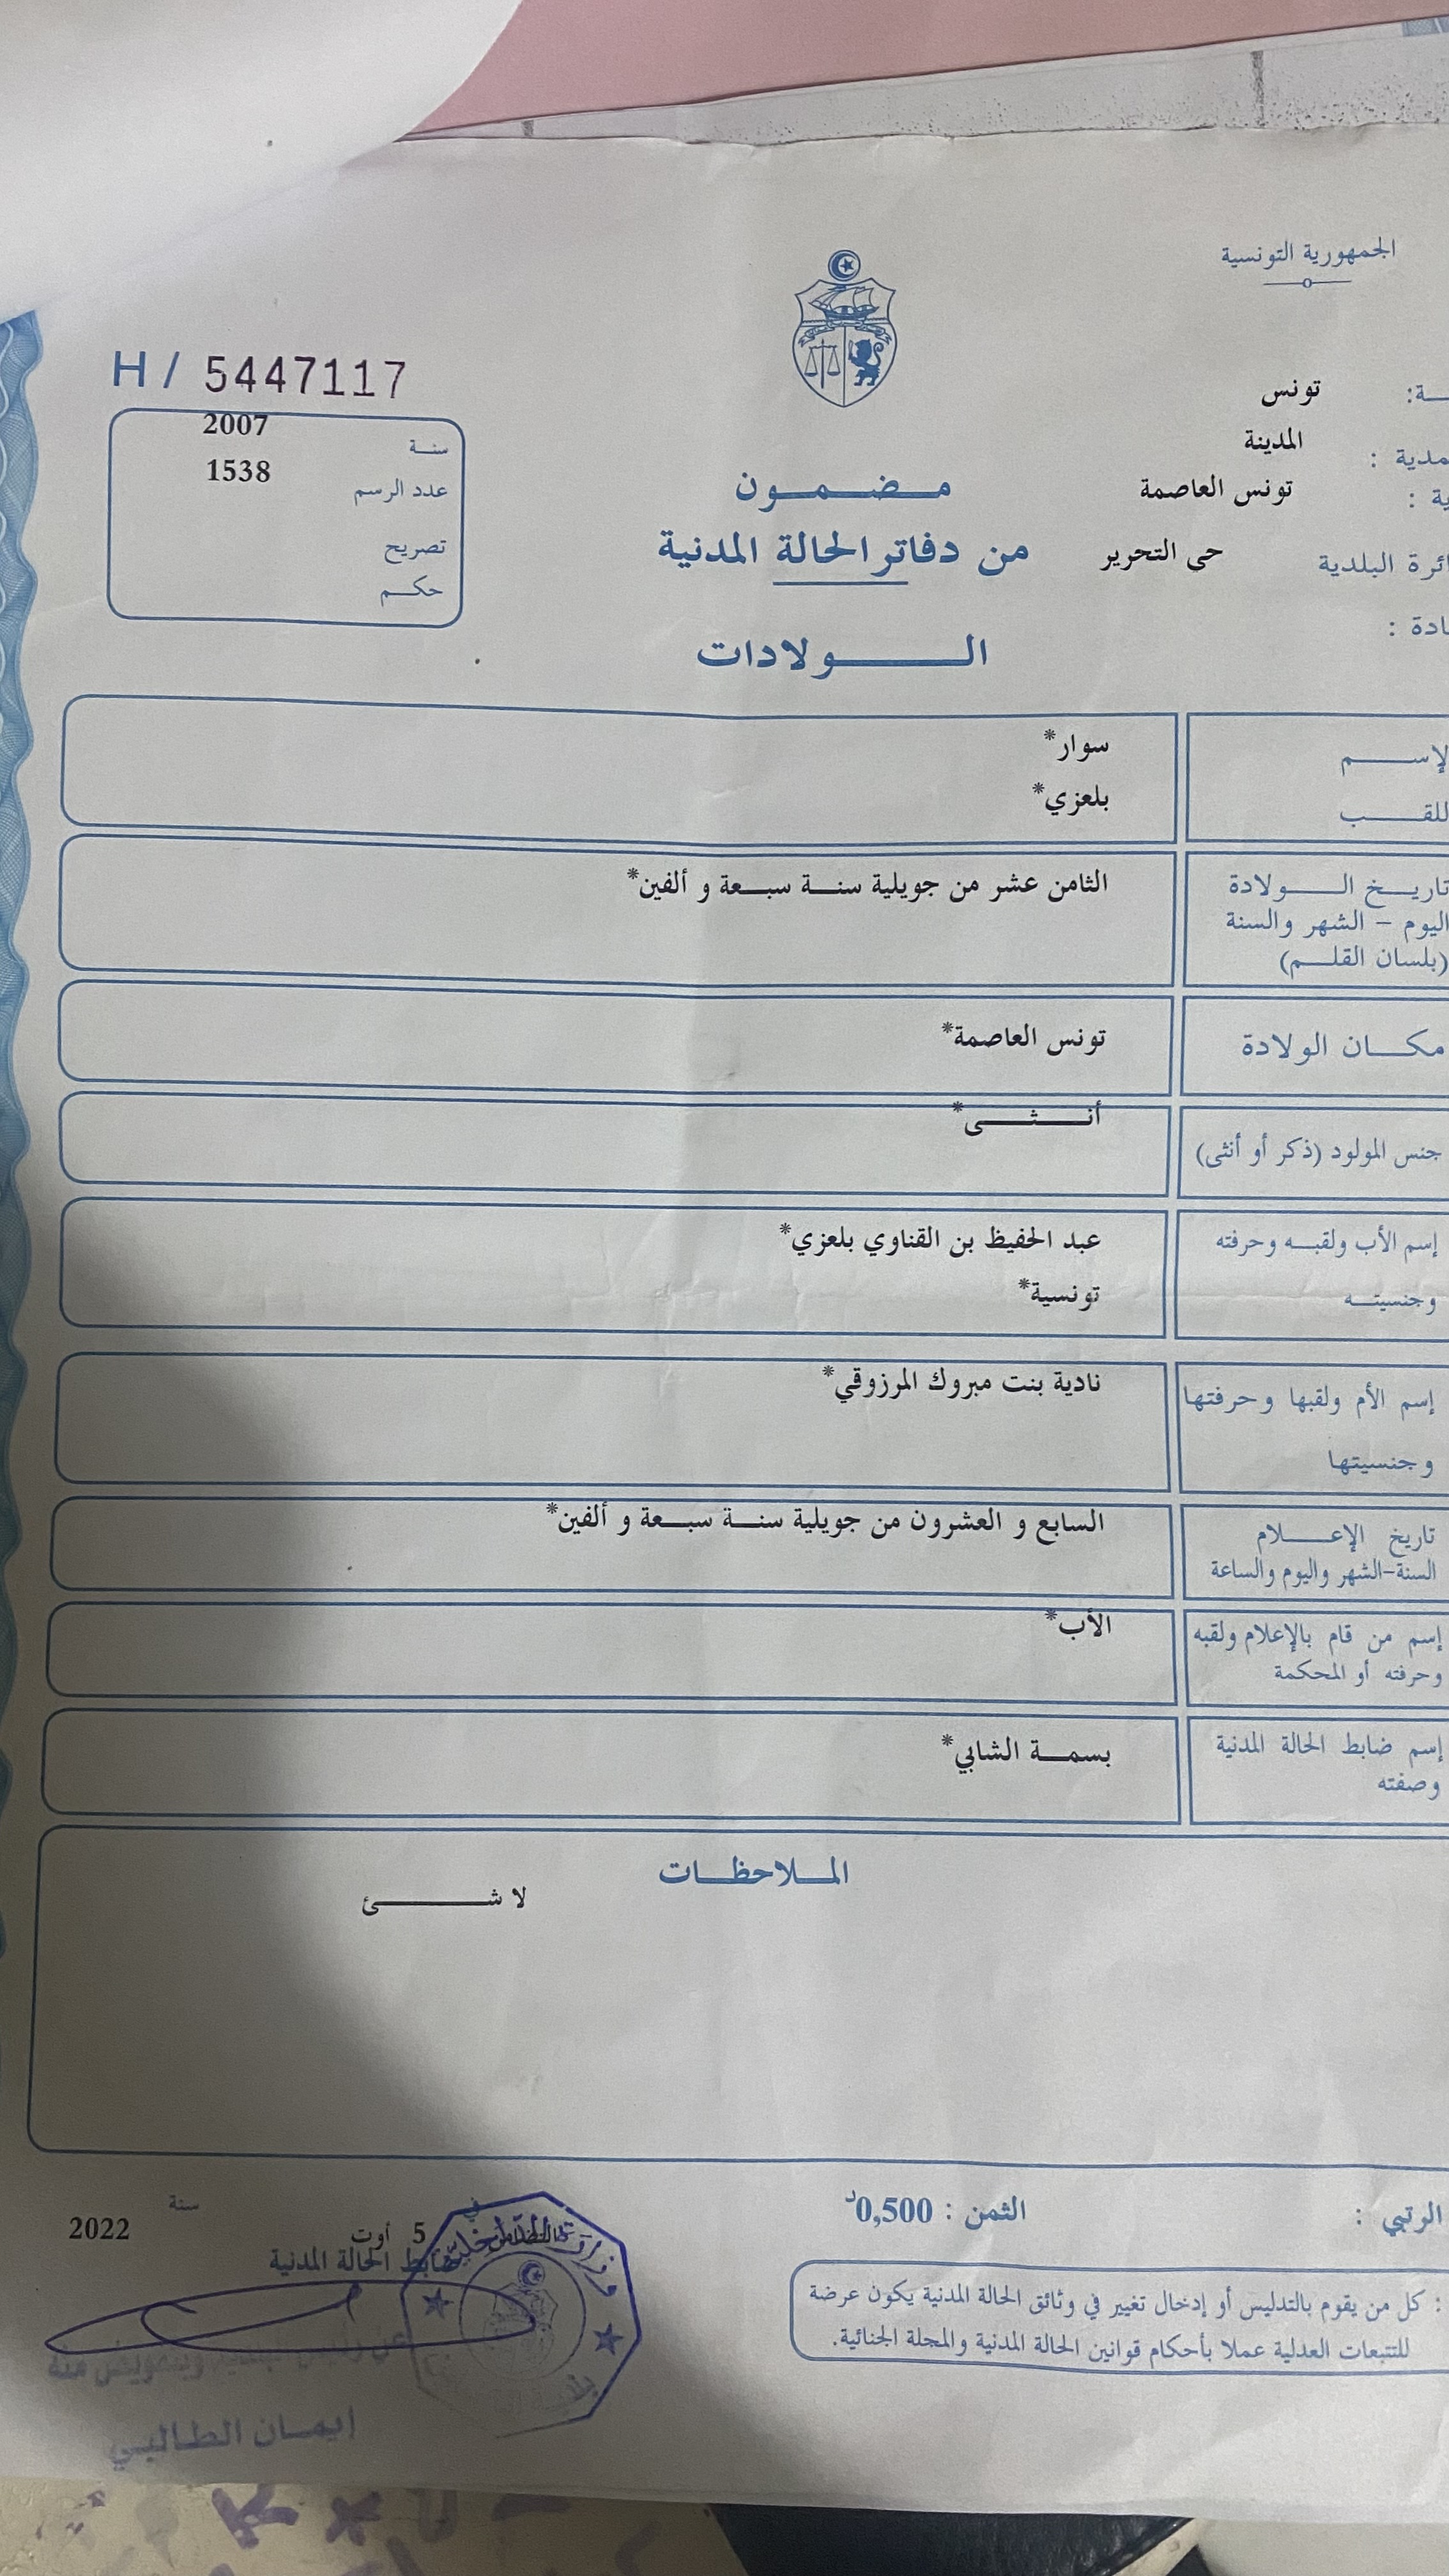 الجمهورية التونسية
H / 5447117
سنة 2007
عدد الرسم 1538
تصريح
حكم
ـة: تونس
مدية : المدينة
ية : تونس العاصمة
ائرة البلدية حى التحرير
ادة :
مضمون
من دفاتر الحالة المدنية
الولادات
لإسم سوار*
للقب بلعزي*
تاريخ الولادة
اليوم - الشهر والسنة
(بلسان القلم)
الثامن عشر من جويلية سنة سبعة و ألفين*
مكان الولادة تونس العاصمة*
جنس المولود (ذكر أو أنثى) أنثى*
إسم الأب ولقبه وحرفته عبد الحفيظ بن القناوي بلعزي*
وجنسيته تونسية*
إسم الأم ولقبها وحرفتها نادية بنت مبروك المرزوقي*
وجنسيتها
تاريخ الإعلام السابع و العشرون من جويلية سنة سبعة و ألفين*
السنة-الشهر واليوم والساعة
إسم من قام بالإعلام ولقبه الأب*
وحرفته أو المحكمة
إسم ضابط الحالة المدنية بسمة الشابي*
وصفته
الملاحظات
لا شئ
الرتبي :
الثمن : 0,500د
في 5 أوت سنة 2022
ضابط الحالة المدنية
: كل من يقوم بالتدليس أو إدخال تغيير في وثائق الحالة المدنية يكون عرضة
للتتبعات العدلية عملا بأحكام قوانين الحالة المدنية والمجلة الجنائية.
وبتفويض منه
إيمان الطالبي